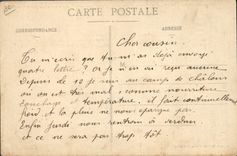 CARTE POSTALE
CORRESPONDANCE
ADRESSE
Cher cousin
Tu m'écris que tu m'as déjà envoyé
quatre lettres ? Or je n'en ai reçu aucune
Depuis 12 je suis au camp de Châlons
ou on est très mal, comme nourriture
température, il fait continuellement
froid et la pluie ne nous épargne pas.
Enfin jeudi nous rentrons à
et ce ne sera pas trop tôt.